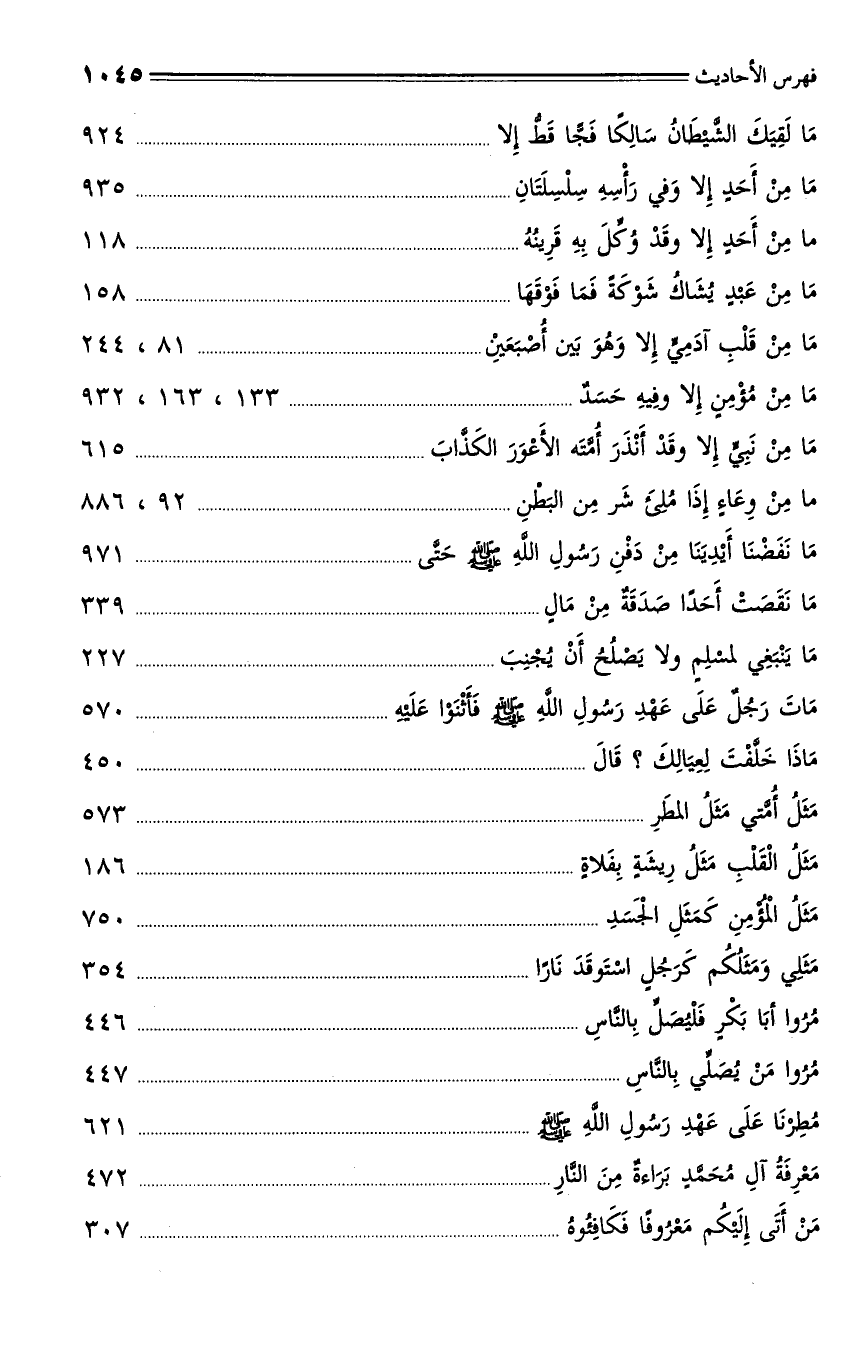 فهرس الأحاديث ١٠٤٥
مَا لَقِيَكَ الشَّيْطَانُ سَالِكًا فَجًّا قَطُّ إِلا ٩٢٤
مَا مِنْ أَحَدٍ إِلا وَفي رَأْسِهِ سِلْسِلَتَانِ ٩٣٥
ما مِنْ أَحَدٍ إِلا وقَدْ وُكِّلَ بِهِ قَرِينُهُ ١١٨
مَا مِنْ عَبْدٍ يُشَاكُ شَوْكَةً فَمَا فَوْقَهَا ١٥٨
مَا مِنْ قَلْبِ آدَمِيٍّ إِلا وَهُوَ بَين أُصْبَعَيْنِ ٨١ ، ٢٤٤
مَا مِنْ مُؤْمِنٍ إِلا وفِيهِ حَسَدٌ ١٣٣ ، ١٦٣ ، ٩٣٢
مَا مِنْ نَبِيٍّ إِلا وقَدْ أَنْذَرَ أُمَّتَه الأَعْوَرَ الكَذَّابَ ٦١٥
ما مِنْ وِعَاءٍ إِذَا مُلِئَ شَر مِن البَطْنِ ٩٢ ، ٨٨٦
مَا نَفَضْنَا أَيْدِيَنَا مِنْ دَفْنِ رَسُولِ اللَّهِ ﷺ حَتَّى ٩٧١
مَا نَقَصَتْ أَحَدًا صَدَقَةٌ مِنْ مَالٍ ٣٣٩
مَا يَنْبَغِي لمسْلِمٍ ولا يَصْلُحُ أَنْ يُجْنِبَ ٢٢٧
مَاتَ رَجُلٌ عَلَى عَهْدِ رَسُولِ اللَّهِ ﷺ فَأَثْنَوْا عَلَيْهِ ٥٧٠
مَاذَا خَلَّفْتَ لِعِيَالِكَ ؟ قَالَ ٤٥٠
مَثَلُ أُمَّتي مَثَلُ المطَرِ ٥٧٣
مَثَلُ الْقَلْبِ مَثَلُ رِيشَةٍ بِفَلاةٍ ١٨٦
مَثَلُ الْمُؤْمِنِ كَمَثَلِ الْجَسَدِ ٧٥٠
مَثَلِي وَمَثَلُكُم كَرَجُلٍ اسْتَوقَدَ نَارًا ٣٥٤
مُرُوا أبَا بَكْرٍ فَلْيُصَلِّ بِالنَّاسِ ٤٤٦
مُرُوا مَنْ يُصَلِّي بِالنَّاسِ ٤٤٧
مُطِرْنَا عَلَى عَهْدِ رَسُولِ اللَّهِ ﷺ ٦٢١
مَعْرِفَةُ آلِ مُحَمَّدٍ بَرَاءةٌ مِنَ النَّارِ ٤٧٢
مَنْ أَتَى إِلَيْكُم مَعْرُوفًا فَكَافِئُوهُ ٣٠٧